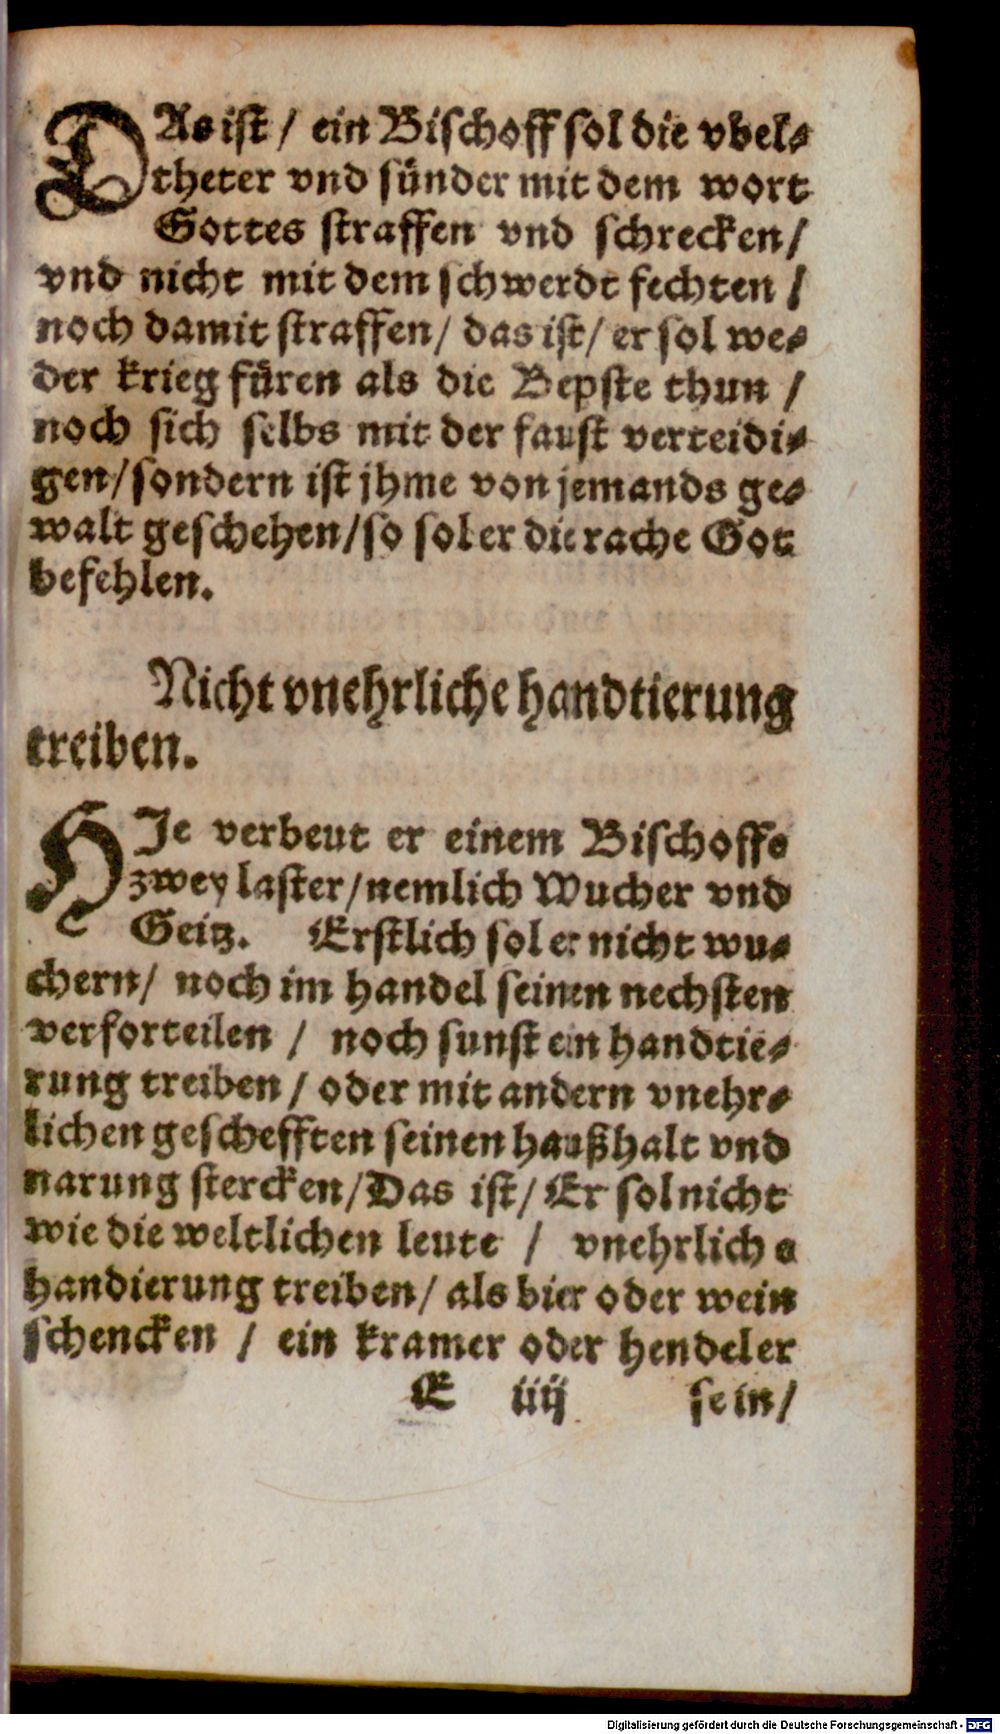 DAs ist / ein Bischoff sol die vbel⸗
theter vnd sünder mit dem wort
Gottes straffen vnd schrecken /
vnd nicht mit dem schwerdt fechten /
noch damit straffen / das ist / er sol we⸗
der krieg füren als die Bepste thun /
noch sich selbs mit der faust verteidi⸗
gen / sondern ist jhme von jemands ge⸗
walt geschehen / so sol er die rache Got
befehlen.
Nicht vnehrliche handtierung
treiben.
HIe verbeut er einem Bischoffe
zwey laster / nemlich Wucher vnd
Geitz. Erstlich sol er nicht wu⸗
chern / noch im handel seinen nechsten
verforteilen / noch sunst ein handtie⸗
rung treiben / oder mit andern vnehr⸗
lichen geschefften seinen haußhalt vnd
narung stercken / Das ist / Er sol nicht
wie die weltlichen leute / vnehrliche
handierung treiben / als bier oder wein
schencken / ein kramer oder hendeler
E iiij sein /
Digitalisierung gefördert durch die Deutsche Forschungsgemeinschaft - DFG